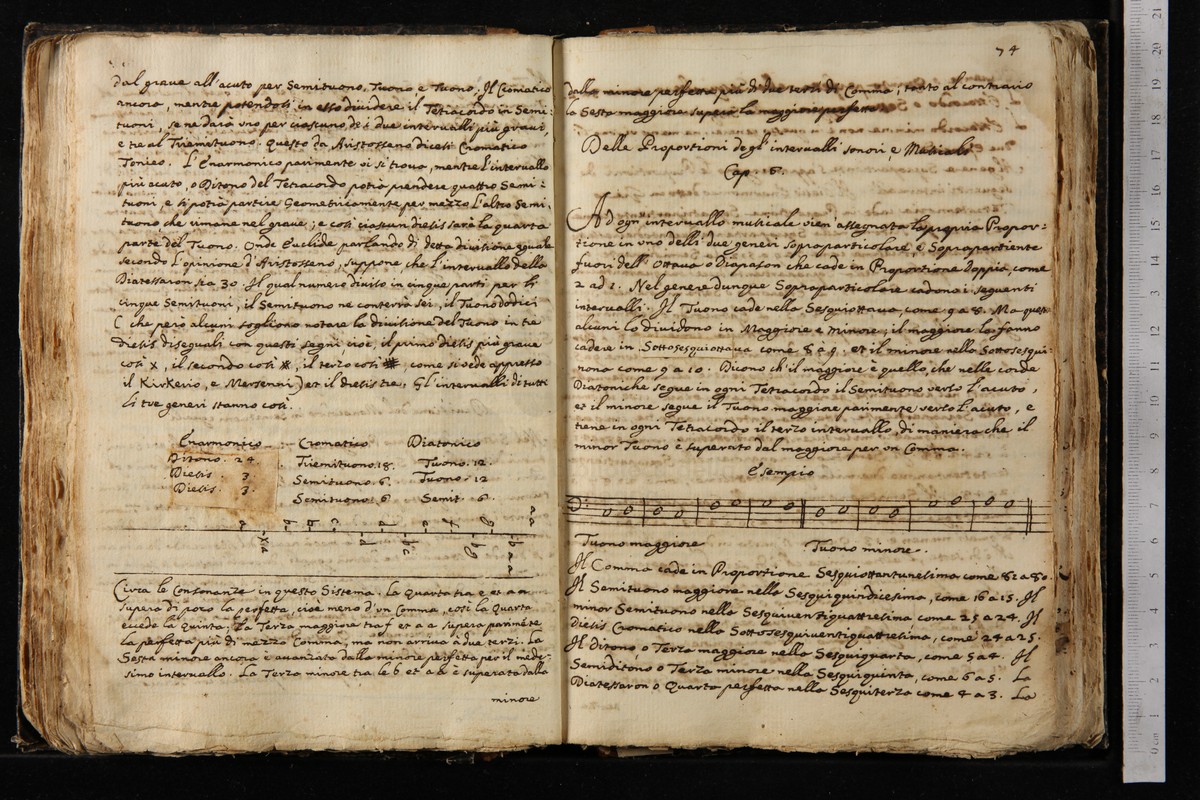 dal grave all'acuto per Semituono, Tuono, e Tuono. Il Cromatico
ancora, mentre potendosi in esso dividere il Tetracordo in Semi:
tuoni, se ne darà uno per ciascuno de i due intervalli più gravi,
e tre al Triemituono. Questo da Aristosseno dicesi Cromatico
Tonieo. L'Enarmonico parimente vi si trova, mentre l'intervallo
più acuto, o Ditono del Tetracordo potrà prendere quattro Semi:
tuoni, e si potrà partire Geometricamente per mezzo l'altro Semi:
tuono che rimane nel grave; e così ciascun diesis sarà la quarta
parte del Tuono. Onde Euclide parlando di detta divisione eguale
secondo l'opinione d'Aristosseno, suppone, che l'intervallo della
Diatessaron sia 30. Il qual numero diviso in cinque parti per li
cinque Semituoni, il Semituono ne conterrà sei, il Tuono dodici
( che però alcuni sogliono notare la divisione del Tuono in tre
diesis diseguali con questi segni cioè, il primo diesis più grave
così x, il secondo così, il terzo così, come si vede appresso
il Kirkerio, e Mersenni) et il diesis tre. Gl'intervalli di tutti
li tre generi stanno così.
Enarmonico Cromatico Diatonico
Ditono. 24. Triemituono. 18. Tuono. 12.
Diesis. 3. Semituono. 6. Tuono. 12
Diesis. 3. Semituono. 6 Semit. 6.
Circa le Consonanze in questo Sistema. La Quarta tra e et a a
supera di poco la perfetta, cioè meno d'un Comma, così la Quarta
eccede la Quinta. La Terza maggiore tra f et a a supera parimẽte
la perfetta più di mezzo Comma, ma non arriva à due terzi. La
Sesta minore ancora è avanzata dalla minore perfetta per il mede:
simo intervallo. La Terza minore tra le b et a è superata dalla
minore
74
dalla minore perfetta più di due terzi di Comma; tanto al contrario
la Sesta maggiore supera la maggiore perfetta.
Delle Proportioni degl'intervalli sonori, e Musicali
Cap. 6.
Ad ogn intervallo musicale vien'assegnata la propria Propor:
tione in uno delli due generi Sopraparticolare, e Soprapartiente
fuori dell'Ottava o Diapason che cade in Proportione Doppia, come
2 ad 1. Nel genere dunque Sopraparticolare cadono i seguenti
intervalli. Il Tuono cade nella Sesquiottava, come 9 a 8. Ma questo
alcuni lo dividono in Maggiore e Minore; il maggiore lo fanno
cadere in Sottosesquiottava come 8 à 9. et il minore nella Sottosesqui:
nona come 9 a 10. Dicono ch'il maggiore è quello, che nelle corde
Diatoniche segue in ogni Tetracordo il Semituono verso l'acuto,
et il minore segue il Tuono maggiore parimente verso l'acuto, e
tiene in ogni Tetracordo il terzo intervallo, di maniera che il
minor Tuono è superato dal maggiore per un Comma.
Esempio
Tuono maggiore Tuono minore.
Il Comma cade in Proportione Sesquiottantunesima come 81 a 80.
Il Semituono maggiore nella Sesquiquindicesima, come 16 a 15. Il
minor Semituono nella Sesquiventiquattresima come 25 a 24. Il
Diesis Cromatico nella Sottosesquiventiquattresima, come 24 a 25.
Il Ditono o Terza maggiore nella Sesquiquarta, come 5 a 4. Il
Semiditono o Terza minore nella Sesquiquinta, come 6 a 5. La
Diatessaron o Quarta perfetta nella Sesquiterza come 4 a 3. La